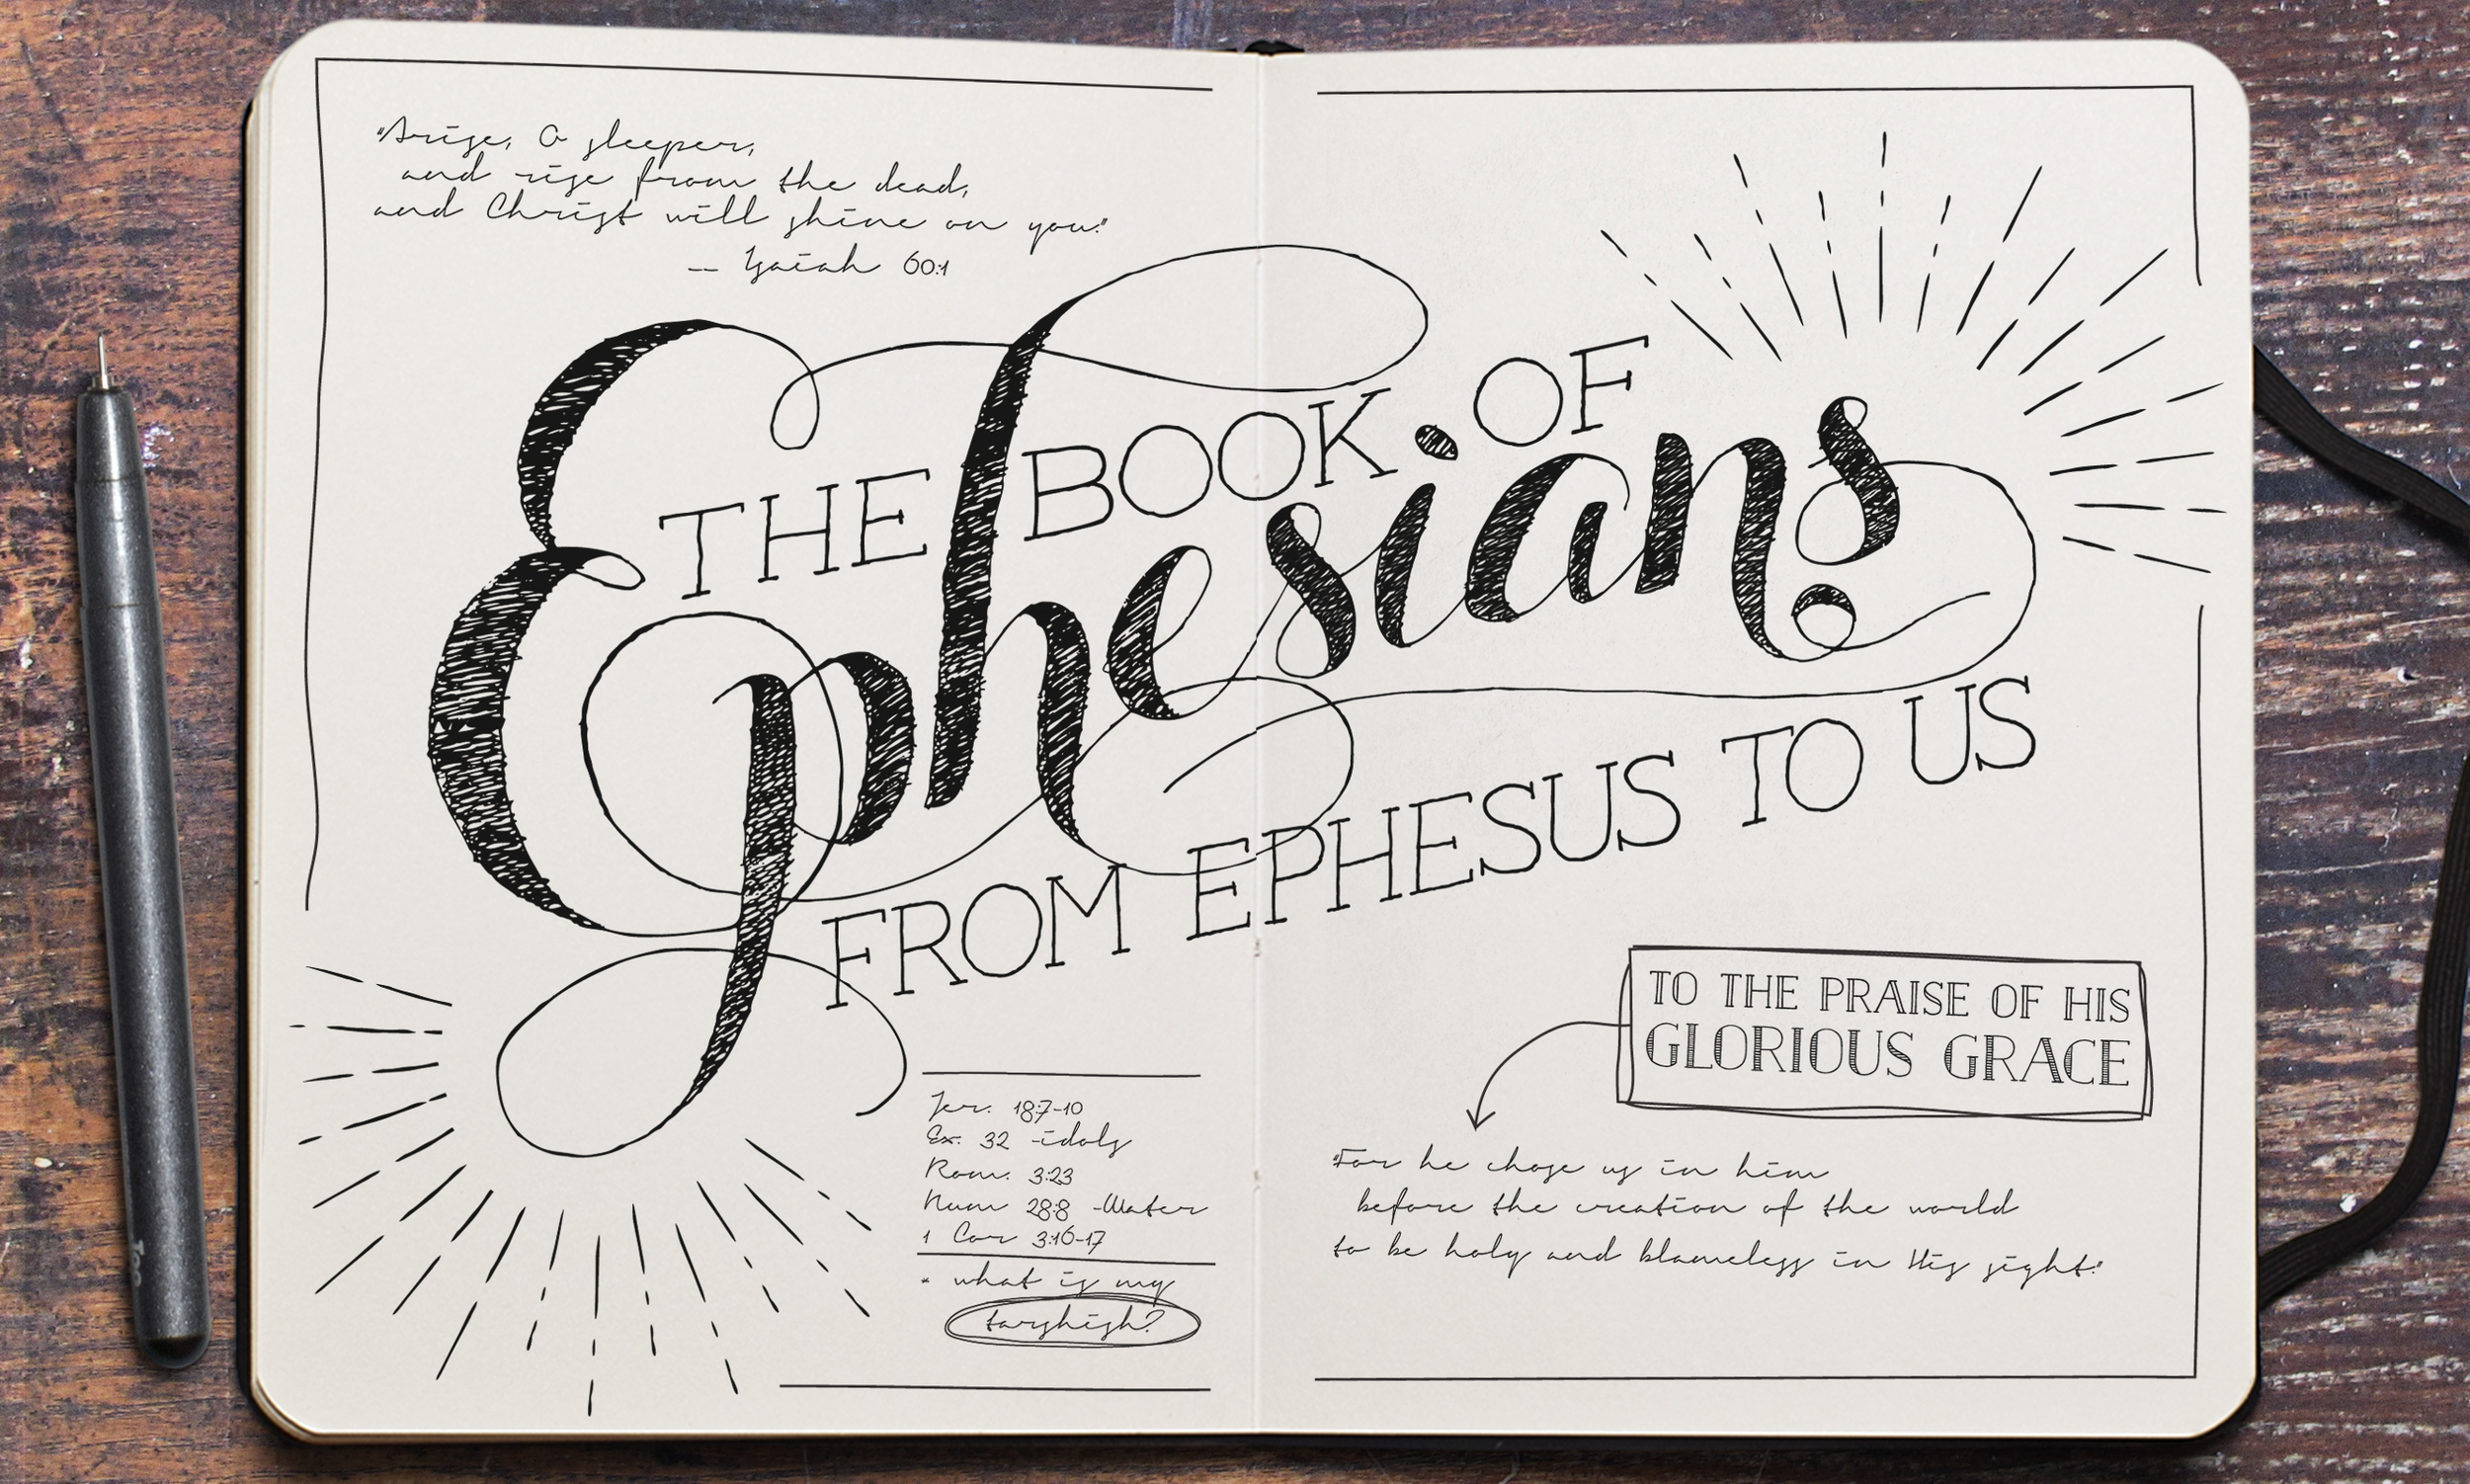 "Arise, O sleeper,
and rise from the dead,
and Christ will shine on you."
-- Isaiah 60:1
THE BOOK OF
Ephesians
FROM EPHESUS TO US
Jer. 18:7-10
Ex. 32 -idols
Rom. 3:23
Num 28:8 -Water
1 Cor 3:16-17
* what is my
tarshish?
TO THE PRAISE OF HIS
GLORIOUS GRACE
"For he chose us in him
before the creation of the world
to be holy and blameless in His sight."